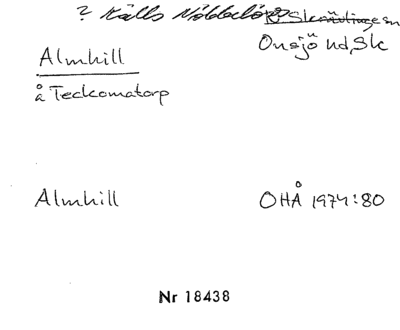 ? Källs Nöbbelöv Skånlinge sn
Onsjö hd, Sk
Almhill
å Teckomatorp
Almhill OHÅ 1974:80
Nr 18438